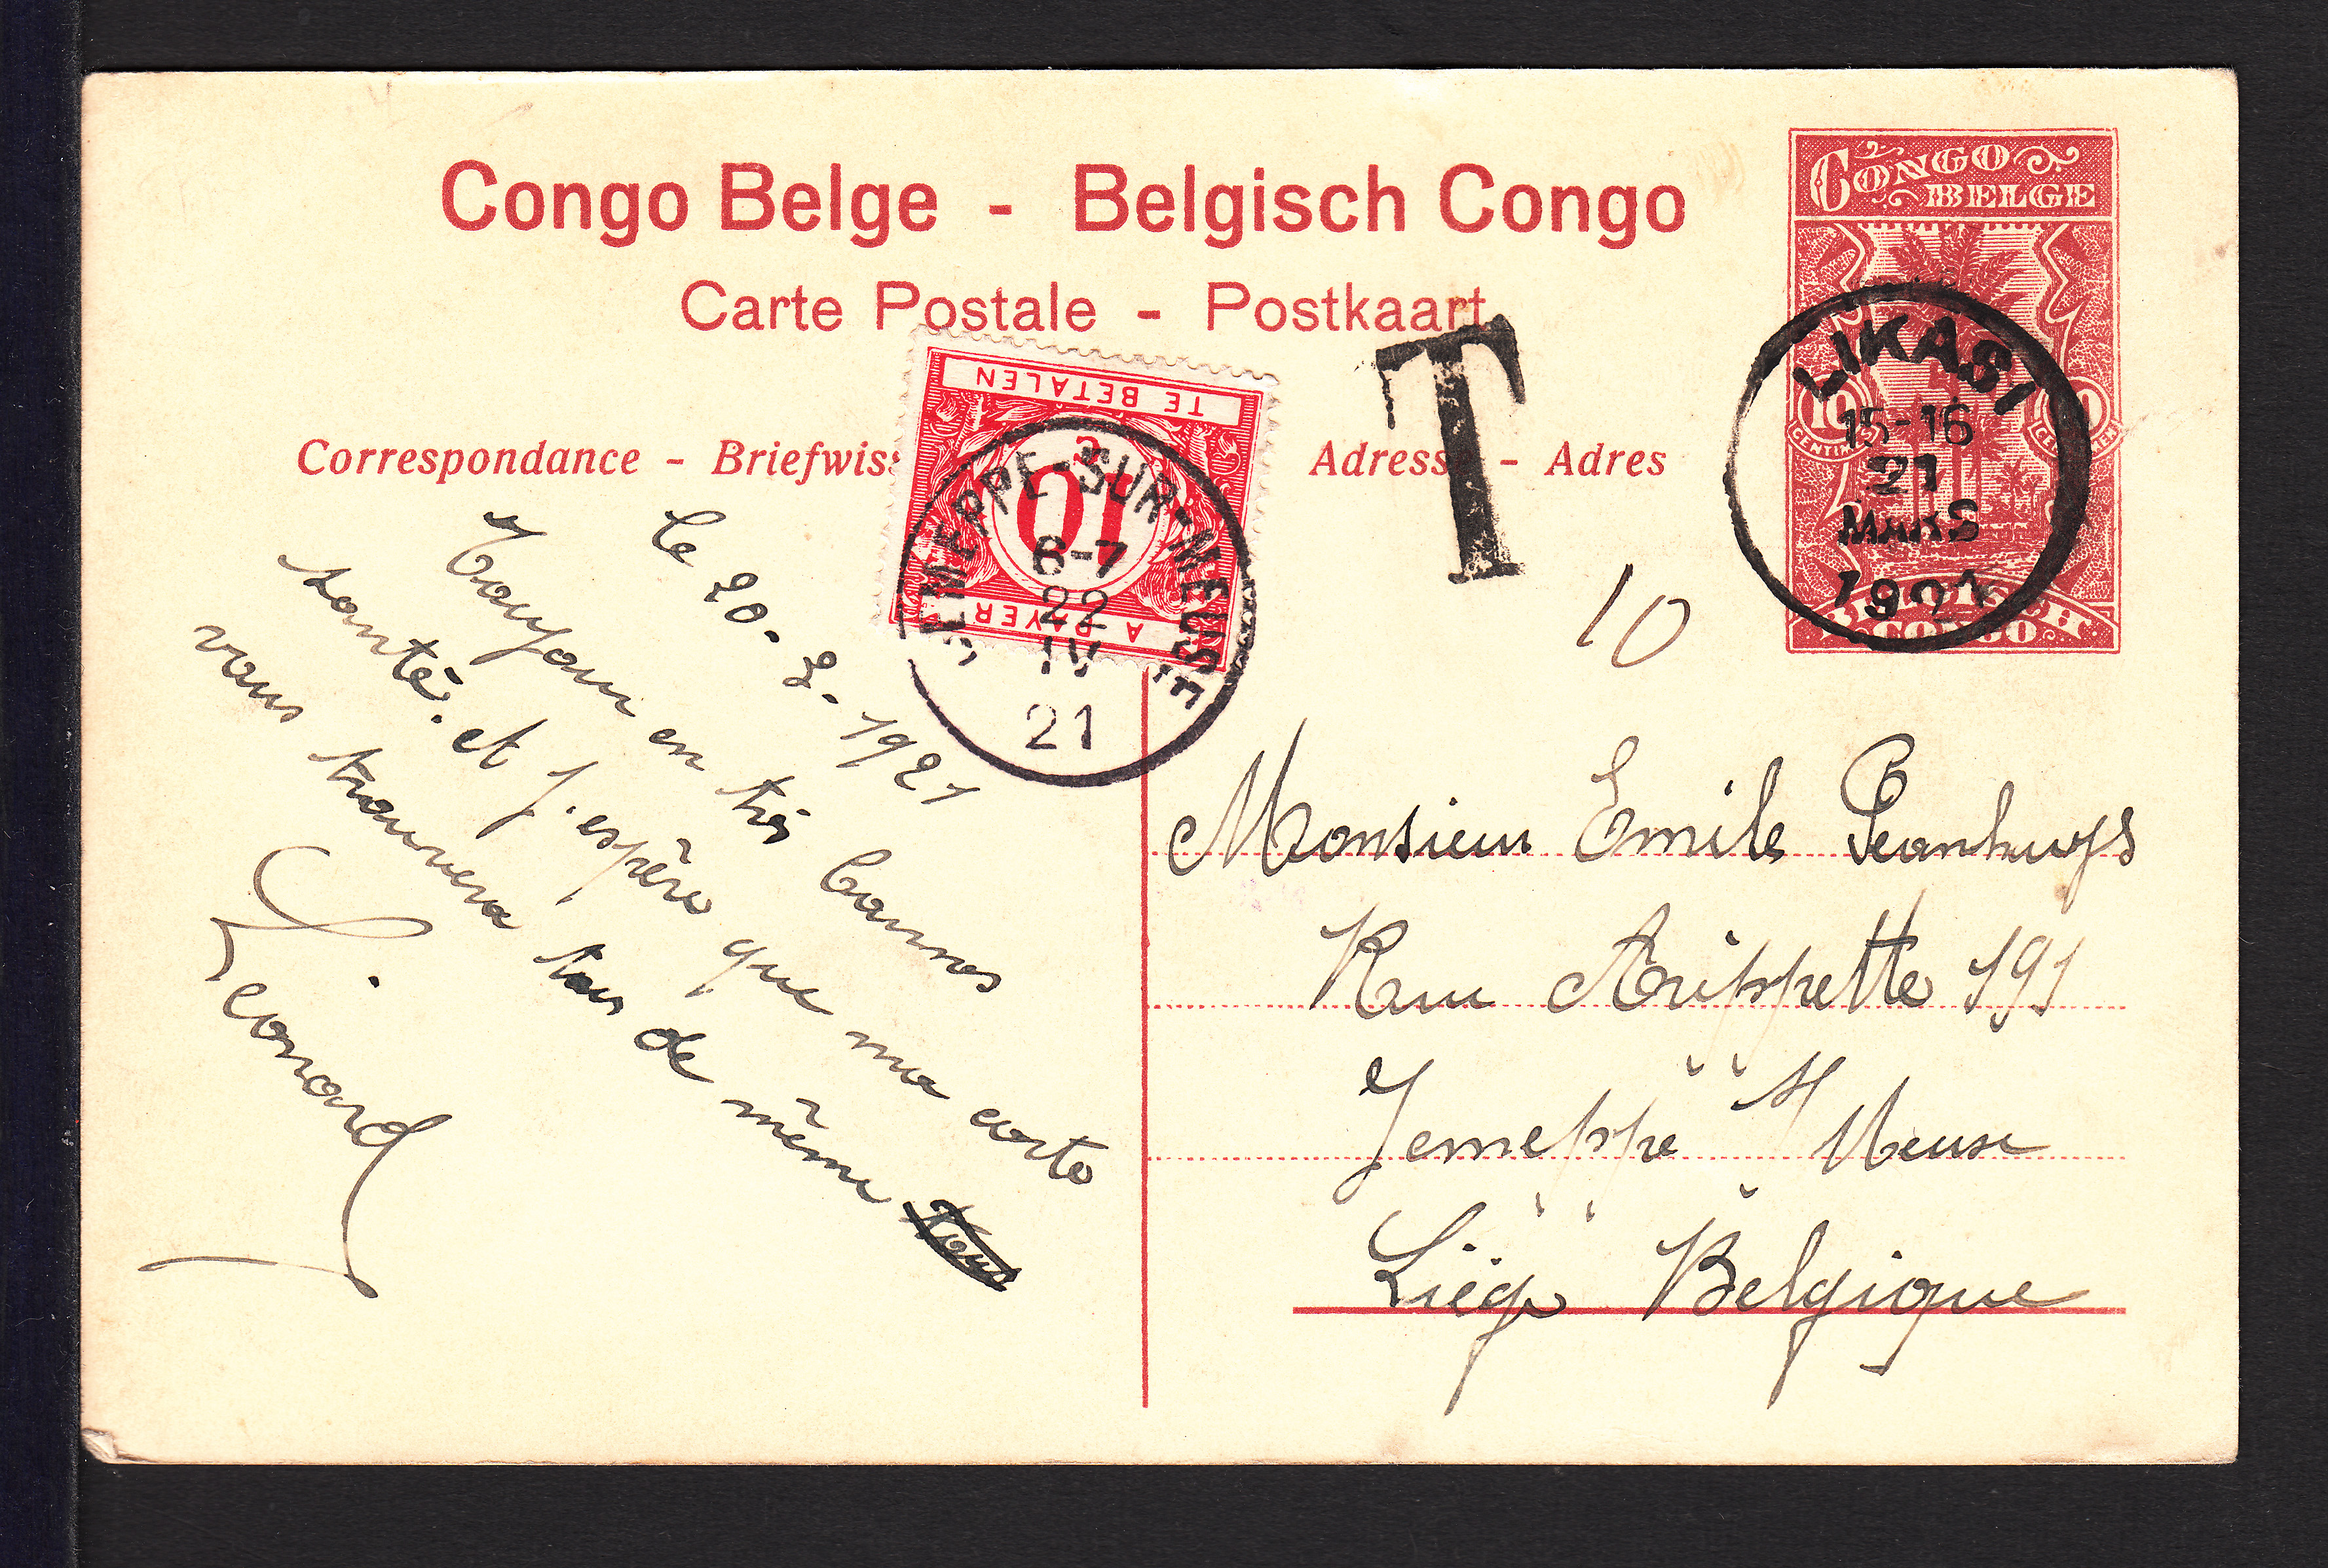 Congo Belge - Belgisch Congo
Carte Postale - Postkaart
CONGO BELGE
10 CENTIMES
10 CENTIEMEN
BELGISCH CONGO
LIKASI
15-16
21
MARS
1921
Correspondance - Briefwiss
Adresse - Adres
TE BETALEN
10 c
A PAYER
JEMEPPE-SUR-MEUSE
6-7
22
IV
21
T
10
Le 20. 3. 1921
en très bonnes
santé. et j'espère que ma carte
vous trouvera tous de même
Leonard
Monsieur Emile
Rue 191
Jemeppe s/ Meuse
Liége Belgique